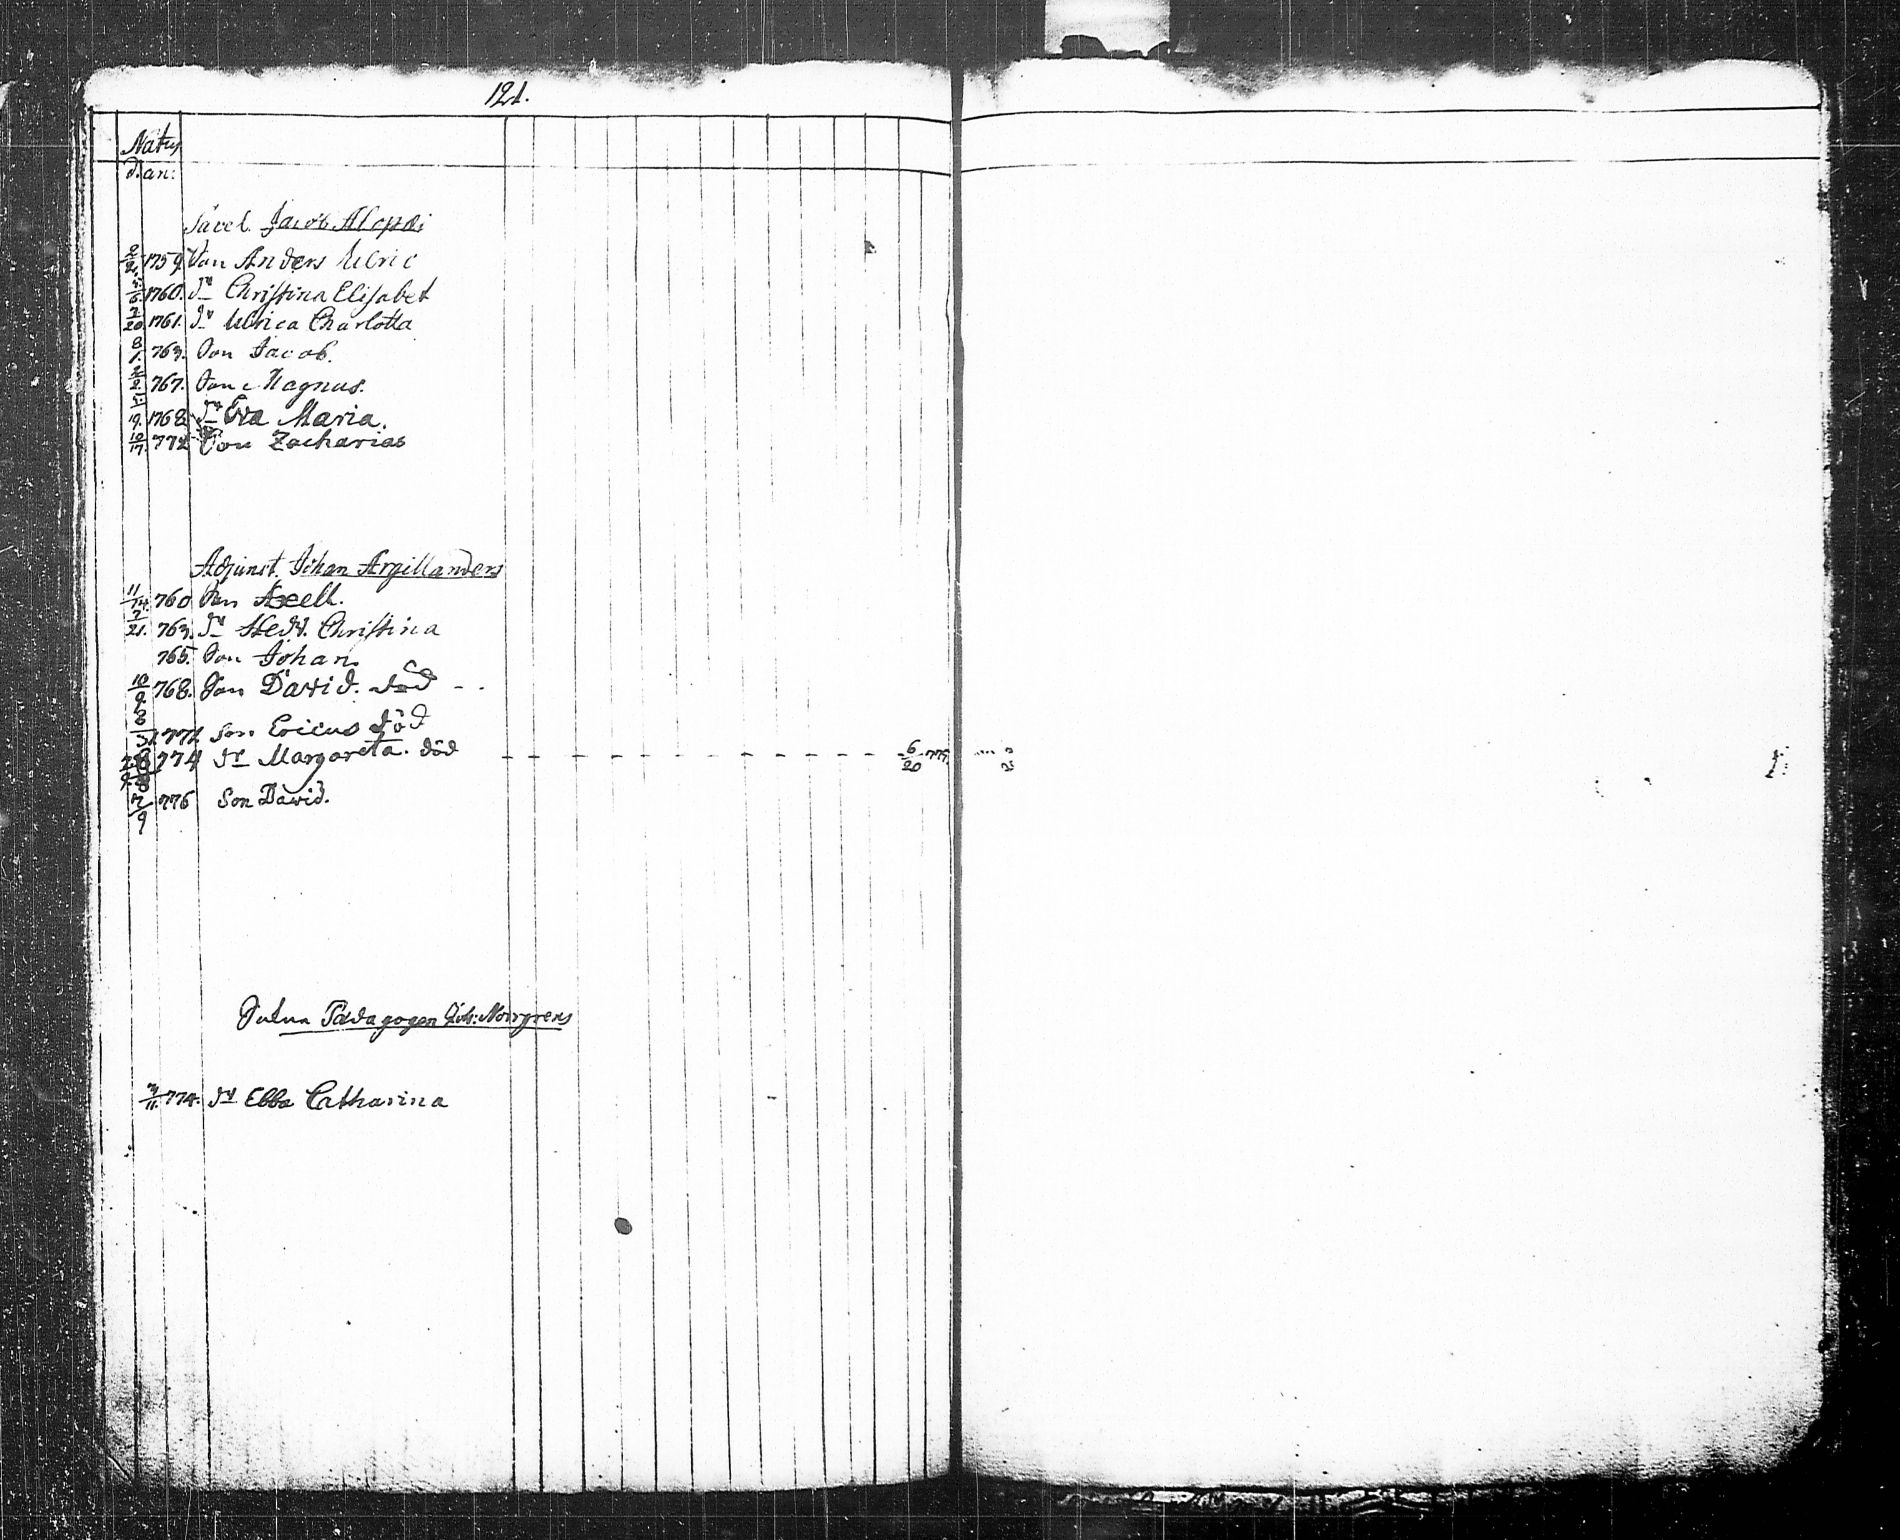 121.
Natus
d. an:
Jacob Alopæi
2/21 1759 Son Anders Ulric
4/6 1760. Dr Christina Elisabet
7/20 1761. Dr Ulrica Charlotta
8/1. 763. Son Jacob.
2/2. 767. Son Magnus.
19. 1768 Dr Eva Maria.
10/17. 772 Son Zacharias
Adjunct. Johan Argillanders
11/14. 760 Son Axell.
7/21. 763. Dr Hedv. Christina
765. Son Johan
10/9 768. Son David. död - -
771 Son Ericus död
774 Dr Margareta. död - - - - - - - - - - - 6/20 777.
7/9 776 Son David.
Pædagogen Joh: Norrgrens
3/11. 774. Dr Ebba Catharina